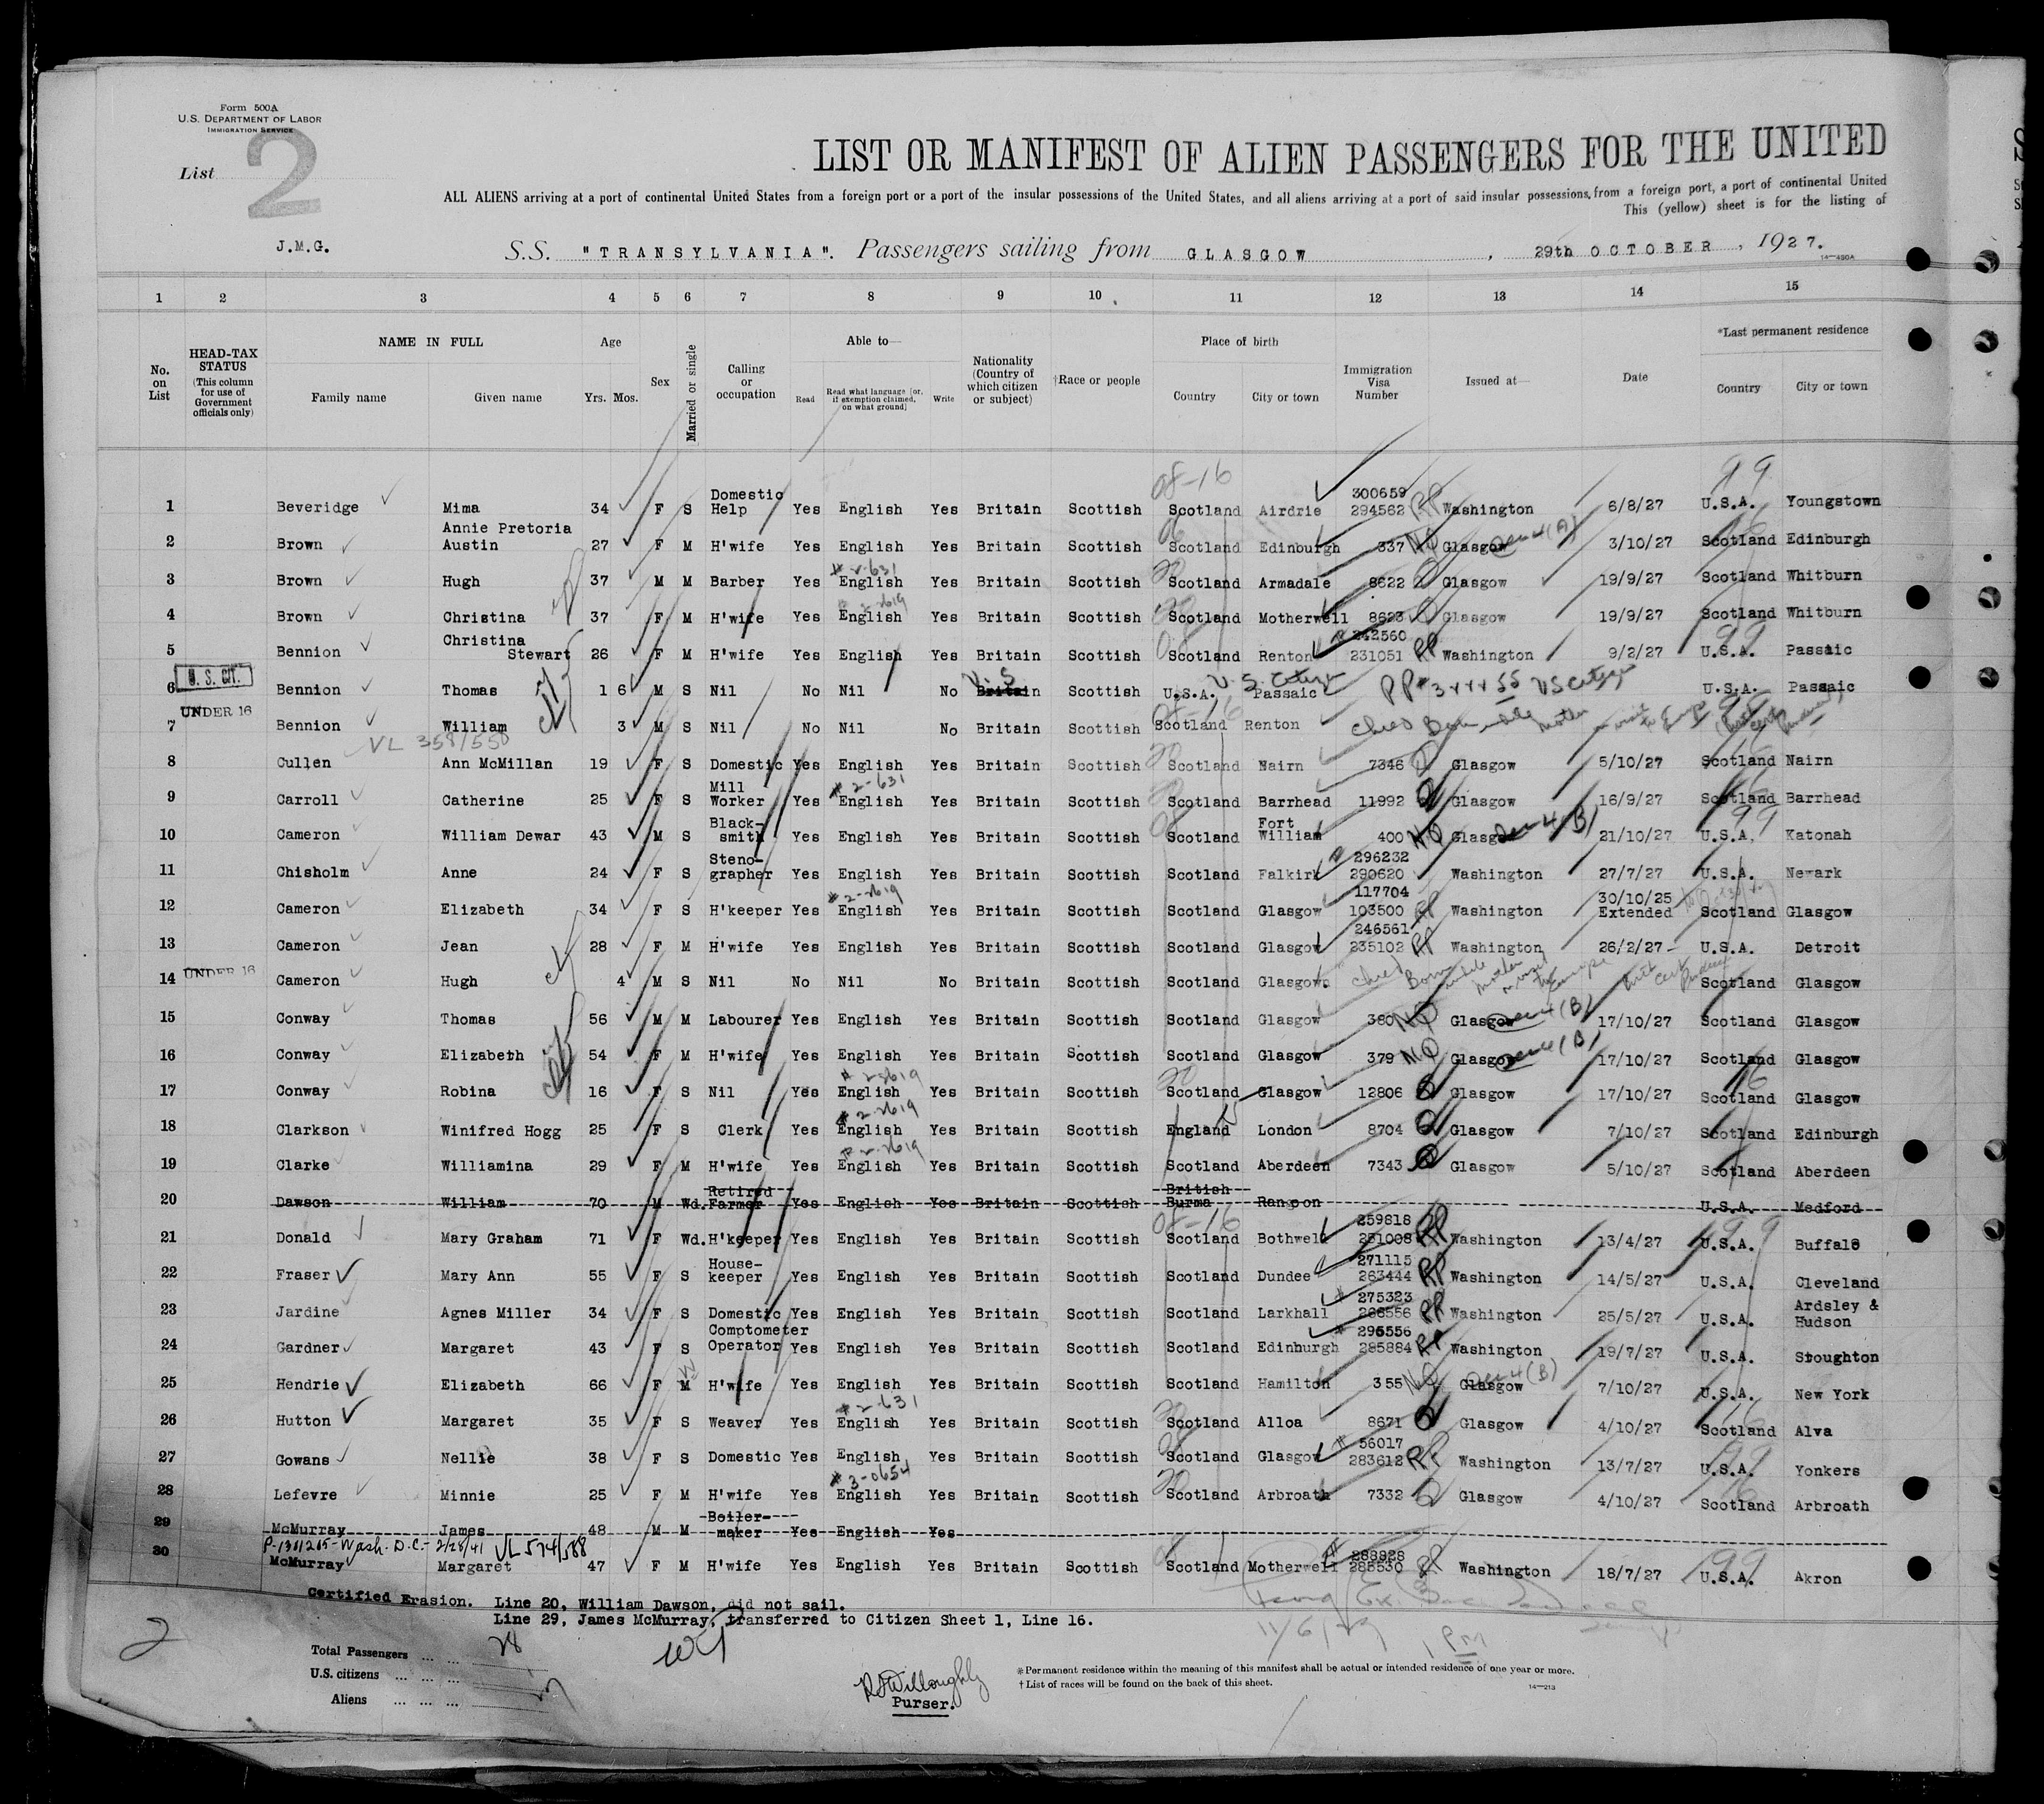 Form 500A
U.S. DEPARTMENT OF LABOR
IMMIGRATION SERVICE
List 2
LIST OR MANIFEST OF ALIEN PASSENGERS FOR THE UNITED
ALL ALIENS arriving at a port of continental United States from a foreign port or a port of the insular possessions of the United States, and all aliens arriving at a port of said insular possessions, from a foreign port, a port of continental United
This (yellow) sheet is for the listing of
J.M.G. S.S. "TRANSYLVANIA". Passengers sailing from GLASGOW, 29th OCTOBER, 1927.
14—490A
1 2 3 4 5 6 7 8 9 10 11 12 13 14 15
No. on List
HEAD-TAX STATUS (This column for use of Government officials only)
NAME IN FULL Family name Given name
Age Yrs. Mos.
Sex
Married or single
Calling or occupation
Able to— Read Read what language [or, if exemption claimed, on what ground] Write
Nationality (Country of which citizen or subject)
†Race or people
Place of birth Country City or town
Immigration Visa Number
Issued at—
Date
*Last permanent residence Country City or town
08-16 99
1 Beveridge Mima 34 F S Domestic Help Yes English Yes Britain Scottish Scotland Airdrie 300659 294562 RP Washington 6/8/27 U.S.A. Youngstown
2 Brown Annie Pretoria Austin 27 F M H'wife Yes English Yes Britain Scottish Scotland Edinburgh 337 NQ Glasgow 3/10/27 Scotland Edinburgh
3 Brown Hugh 37 M M Barber Yes English Yes Britain Scottish Scotland Armadale 8622 Q Glasgow 19/9/27 Scotland Whitburn
4 Brown Christina 37 F M H'wife Yes English Yes Britain Scottish Scotland Motherwell 8623 Q Glasgow 19/9/27 Scotland Whitburn
5 Bennion Christina Stewart 26 F M H'wife Yes English Yes Britain Scottish Scotland Renton 242560 231051 RP Washington 9/2/27 U.S.A. Passaic
U. S. CIT.
6 Bennion Thomas 1 6 M S Nil No Nil No U.S. Britain Scottish U.S.A. U.S. Citizen Passaic US Citizen U.S.A. Passaic
UNDER 16
7 Bennion William 3 M S Nil No Nil No Britain Scottish Scotland Renton
VL 358/550
8 Cullen Ann McMillan 19 F S Domestic Yes English Yes Britain Scottish Scotland Nairn 7346 Q Glasgow 5/10/27 Scotland Nairn
# 2-631
9 Carroll Catherine 25 F S Mill Worker Yes English Yes Britain Scottish Scotland Barrhead 11992 Q Glasgow 16/9/27 Scotland Barrhead
10 Cameron William Dewar 43 M S Black-smith Yes English Yes Britain Scottish Scotland Fort William 400 NQ Glasgow 21/10/27 U.S.A. Katonah
11 Chisholm Anne 24 F S Steno-grapher Yes English Yes Britain Scottish Scotland Falkirk 296232 290620 Washington 27/7/27 U.S.A. Newark
12 Cameron Elizabeth 34 F S H'keeper Yes English Yes Britain Scottish Scotland Glasgow 117704 103500 RP Washington 30/10/25 Extended Scotland Glasgow
13 Cameron Jean 28 F M H'wife Yes English Yes Britain Scottish Scotland Glasgow 246561 235102 RP Washington 26/2/27 U.S.A. Detroit
UNDER 16
14 Cameron Hugh 4 M S Nil No Nil No Britain Scottish Scotland Glasgow. Scotland Glasgow
15 Conway Thomas 56 M M Labourer Yes English Yes Britain Scottish Scotland Glasgow 380 NQ Glasgow 17/10/27 Scotland Glasgow
16 Conway Elizabeth 54 F M H'wife Yes English Yes Britain Scottish Scotland Glasgow 379 NQ Glasgow 17/10/27 Scotland Glasgow
17 Conway Robina 16 F S Nil Yes English Yes Britain Scottish Scotland Glasgow 12806 Q Glasgow 17/10/27 Scotland Glasgow
18 Clarkson Winifred Hogg 25 F S Clerk Yes English Yes Britain Scottish England London 8704 Q Glasgow 7/10/27 Scotland Edinburgh
19 Clarke Williamina 29 F M H'wife Yes English Yes Britain Scottish Scotland Aberdeen 7343 Q Glasgow 5/10/27 Scotland Aberdeen
20 Dawson William 70 M Wd. Retired Farmer Yes English Yes Britain Scottish British Burma Rangoon U.S.A. Medford
08-16
21 Donald Mary Graham 71 F Wd. H'keeper Yes English Yes Britain Scottish Scotland Bothwell 259818 251008 RP Washington 13/4/27 U.S.A. Buffalo
22 Fraser Mary Ann 55 F S House-keeper Yes English Yes Britain Scottish Scotland Dundee 271115 263444 RP Washington 14/5/27 U.S.A. Cleveland
23 Jardine Agnes Miller 34 F S Domestic Yes English Yes Britain Scottish Scotland Larkhall 275323 RP Washington 25/5/27 U.S.A. Ardsley & Hudson
24 Gardner Margaret 43 F S Comptometer Operator Yes English Yes Britain Scottish Scotland Edinburgh 295556 285884 RP Washington 19/7/27 U.S.A. Stoughton
25 Hendrie Elizabeth 66 F M H'wife Yes English Yes Britain Scottish Scotland Hamilton 355 NQ Glasgow 7/10/27 U.S.A. New York
# 2-631
26 Hutton Margaret 35 F S Weaver Yes English Yes Britain Scottish Scotland Alloa 8671 Q Glasgow 4/10/27 Scotland Alva
27 Gowans Nellie 38 F S Domestic Yes English Yes Britain Scottish Scotland Glasgow 56017 283612 RP Washington 13/7/27 U.S.A. Yonkers
# 3-0654
28 Lefevre Minnie 25 F M H'wife Yes English Yes Britain Scottish Scotland Arbroath 7332 Q Glasgow 4/10/27 Scotland Arbroath
29 McMurray James 48 M M Boiler-maker Yes English Yes
Wash. D.C.- 2/28/41 VL 574/588
30 McMurray Margaret 47 F M H'wife Yes English Yes Britain Scottish Scotland Motherwell 285530 RP Washington 18/7/27 U.S.A. Akron
Certified Erasion. Line 20, William Dawson, did not sail.
Line 29, James McMurray, transferred to Citizen Sheet 1, Line 16.
2
Total Passengers ... ... 28
U.S. citizens ... ... ...
Aliens ... ... ...
1 PM
Willoughby
Purser.
*Permanent residence within the meaning of this manifest shall be actual or intended residence of one year or more.
† List of races will be found on the back of this sheet.
14—213